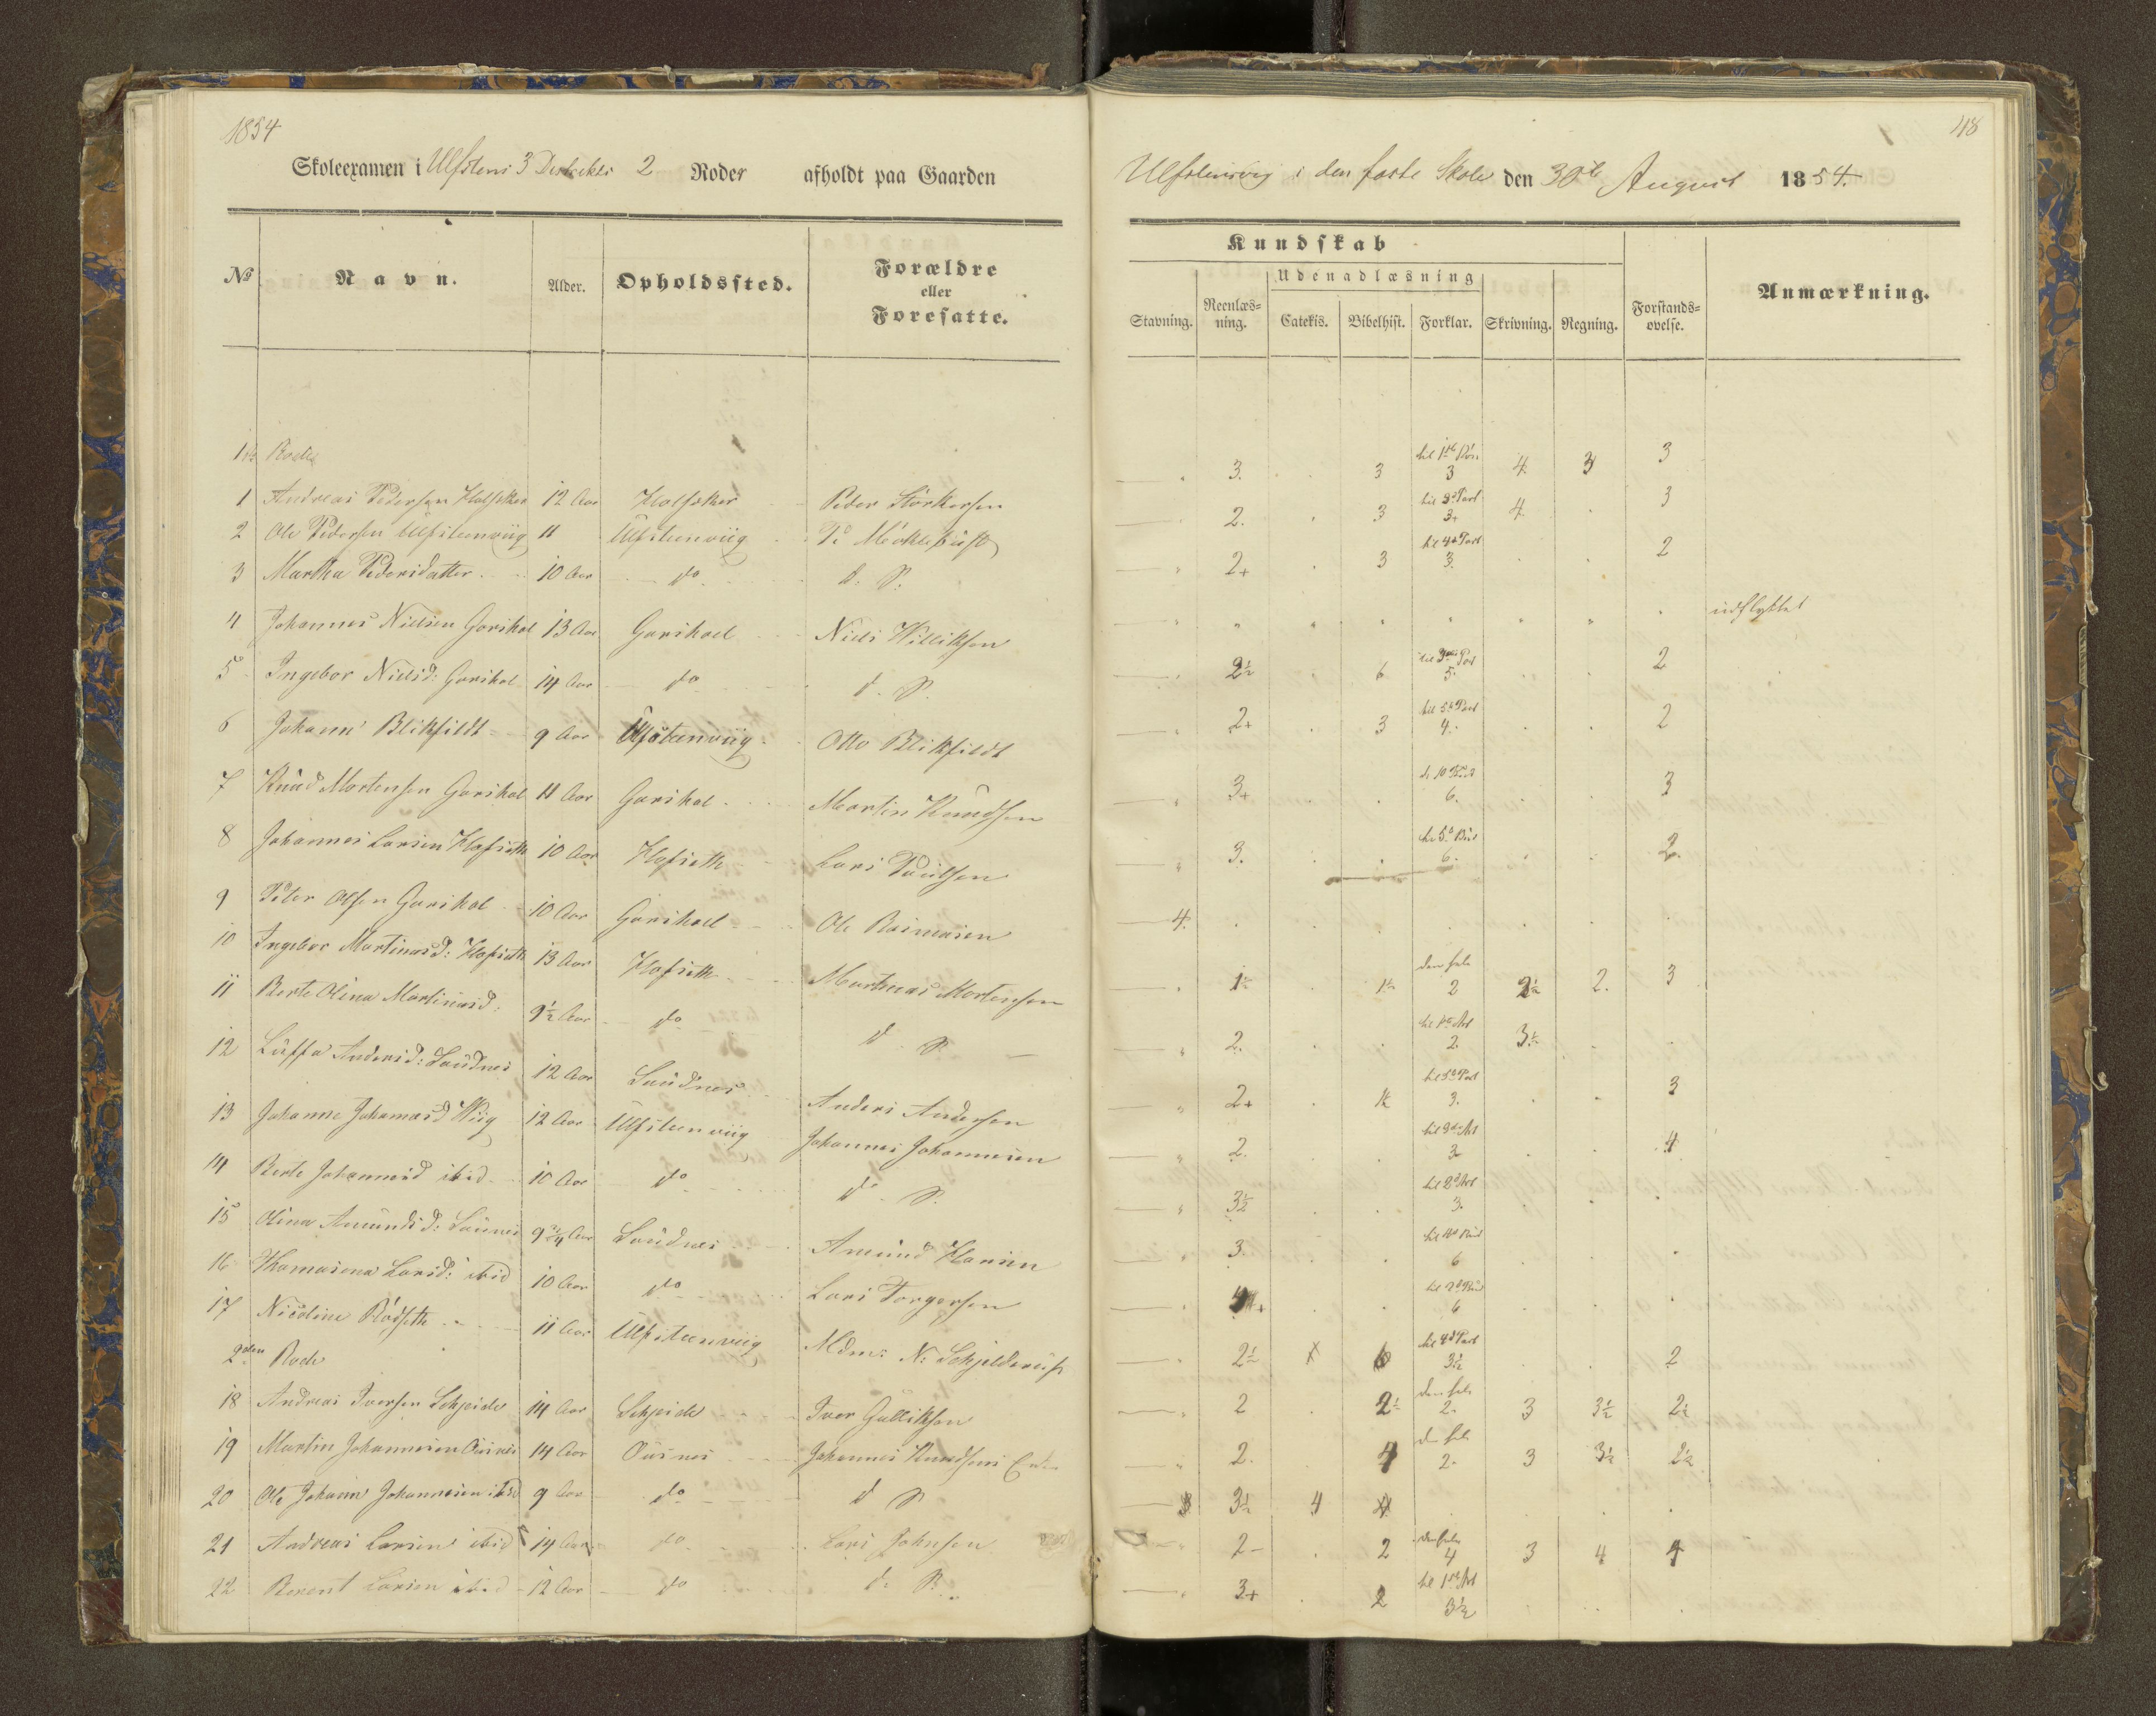 1854
Skoleexamen i Ulfstens 3 Destrikts 2 Roder afholdt paa Gaarden
No Navn. Alder. Opholdssted. Forældre
eller
Foresatte.
1ste Rode
1 Andreas Pedersen 12 Aar Peder Størkersen
2 Ole Pedersen Ulfsteenviig 11 Ulfsteenviig
3 Martha Pedersdatter 10 Aar do d. P.
4 Johannes Nielsen Garshol 13 Aar Garshoel Niels Williksen
5 Ingebor Nielsd: Garshol 14 Aar do d. P.
6 Johann Blikfeldt 9 Aar Ulfsteenviig Otto Blikfeldt
7 Knud Mortensen Garshol 11 Aar Garshol Martin Knudsen
8 Johannes Larsen Hofseth 10 Aar Hofseth Lars
9 Peter Olsen Garshol 10 Aar Garshoel Ole Rasmusen
10 Ingebor Martinusd: Hofseth 13 Aar Hofseth Martinus Mortensen
11 Berte Olina Martinusd: 9½ Aar do d P.
12 Andersd: Saudnes 12 Aar Saudnes Anders Andersen
13 Johanne Johannesd Wiig 12 Aar Ulfsteenviig Johannes Johannesen
14 Berte Johannesd ibid 10 Aar do do P.
15 Olina Amundsd: Saunes 9¾ Aar Saudnes Amund Hansen
16 Thomasena Larsd: ibid 10 Aar do Lars Torgersen
17 Nicoline Rødseth 11 Aar Ulfsteenviig Mdm: N: Schjelderup
2den Rode
18 Andreas Iversen Schjeide 14 Aar Schjeide Iver Gulliksen
19 Martin Johannesen Ousnes 14 Aar Ousnes Johannes Knudsens
20 Ole Johann Johannesen ibid 9 Aar do d P.
21 Andreas Larsen ibid 14 Aar do Lars Johnsen
22 Berent Larsen ibid 12 Aar do d. P.
48
Ulfstenvig i den faste Skole den 30te August 1854.
Kundskab
Udenadlæsning
Stavning. Reenlæs-
ning. Catekis. Bibelhist. Forklar. Skrivning. Regning. Forstands-
øvelse. Anmærkning.
til 1ste
3. 3 3 4. 3 3
til 3d Part
2. 3 3+ 4. 3
til 4de Part
2+ 3 3. 2
udflyttet
2½ 6 5. 2
til 5d Part
2+ 3 4. 2
3+ 6. 3
3. 6. 2.
4.
den hele
1½ 1½ 2 2½ 2. 3
2. 2. 3½
til 3d Part
2+ 1½ 3. 3
2. 3 4
3½ 3.
3. 6
6
til 4d Part
2½ 6 3½ 2
den hele
2 2½ 2. 3 3½ 2½
den hele
2. 4 2. 3 3½ 2½
3 3½ 4
den hele
2- 2 4 3 4 4
3+ 2 3½